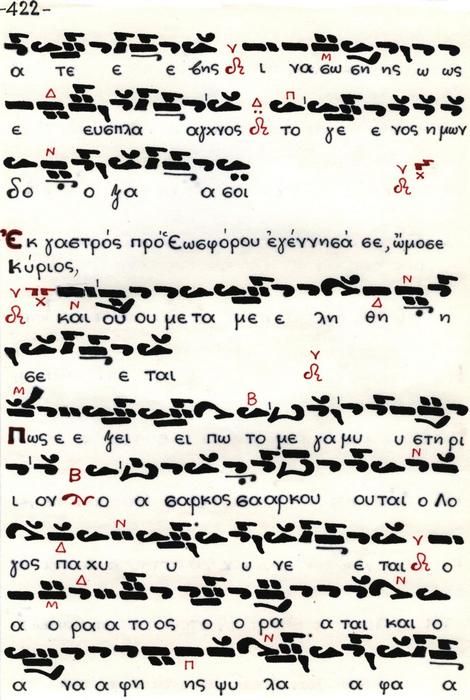 -422-
α τε ε ε βης ι να σω ση ης ω ως
ε ευσπλα αγχνος το γε ε νος ημων
δο ο ξα α σοι
Ἐκ γαστρός πρό Ἑωσφόρου ἐγέννησά σε, ὤμοσε
Κύριος,
και ου ου με τα με ε λη θη η
σε ε ται
Πως ε ε ξει ει πω το με γα μυ υ στη ρι
ι ον ο α σαρκος σααρκου ουται ο Λο
γος παχυ υ υ νε ε ται ο
α ο ρα α το ος ο ο ρα α ται και ο
α να α φη ης ψυ λα α φα α